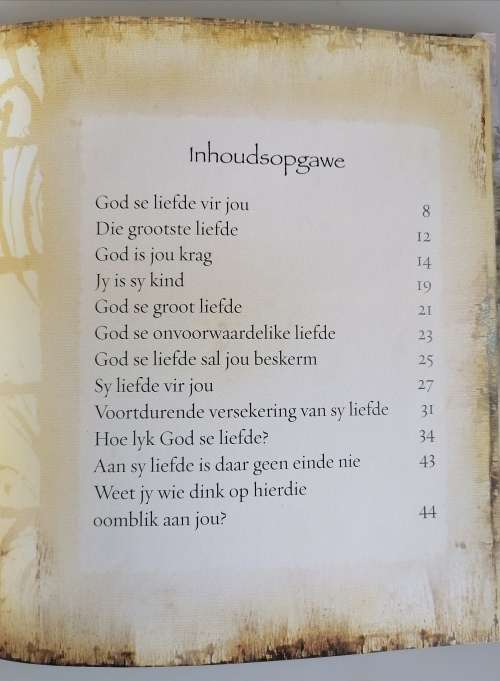 Inhoudsopgawe
God se liefde vir jou 8
Die grootste liefde 12
God is jou krag 14
Jy is sy kind 19
God se groot liefde 21
God se onvoorwaardelike liefde 23
God se liefde sal jou beskerm 25
Sy liefde vir jou 27
Voortdurende versekering van sy liefde 31
Hoe lyk God se liefde? 34
Aan sy liefde is daar geen einde nie 43
Weet jy wie dink op hierdie
oomblik aan jou? 44